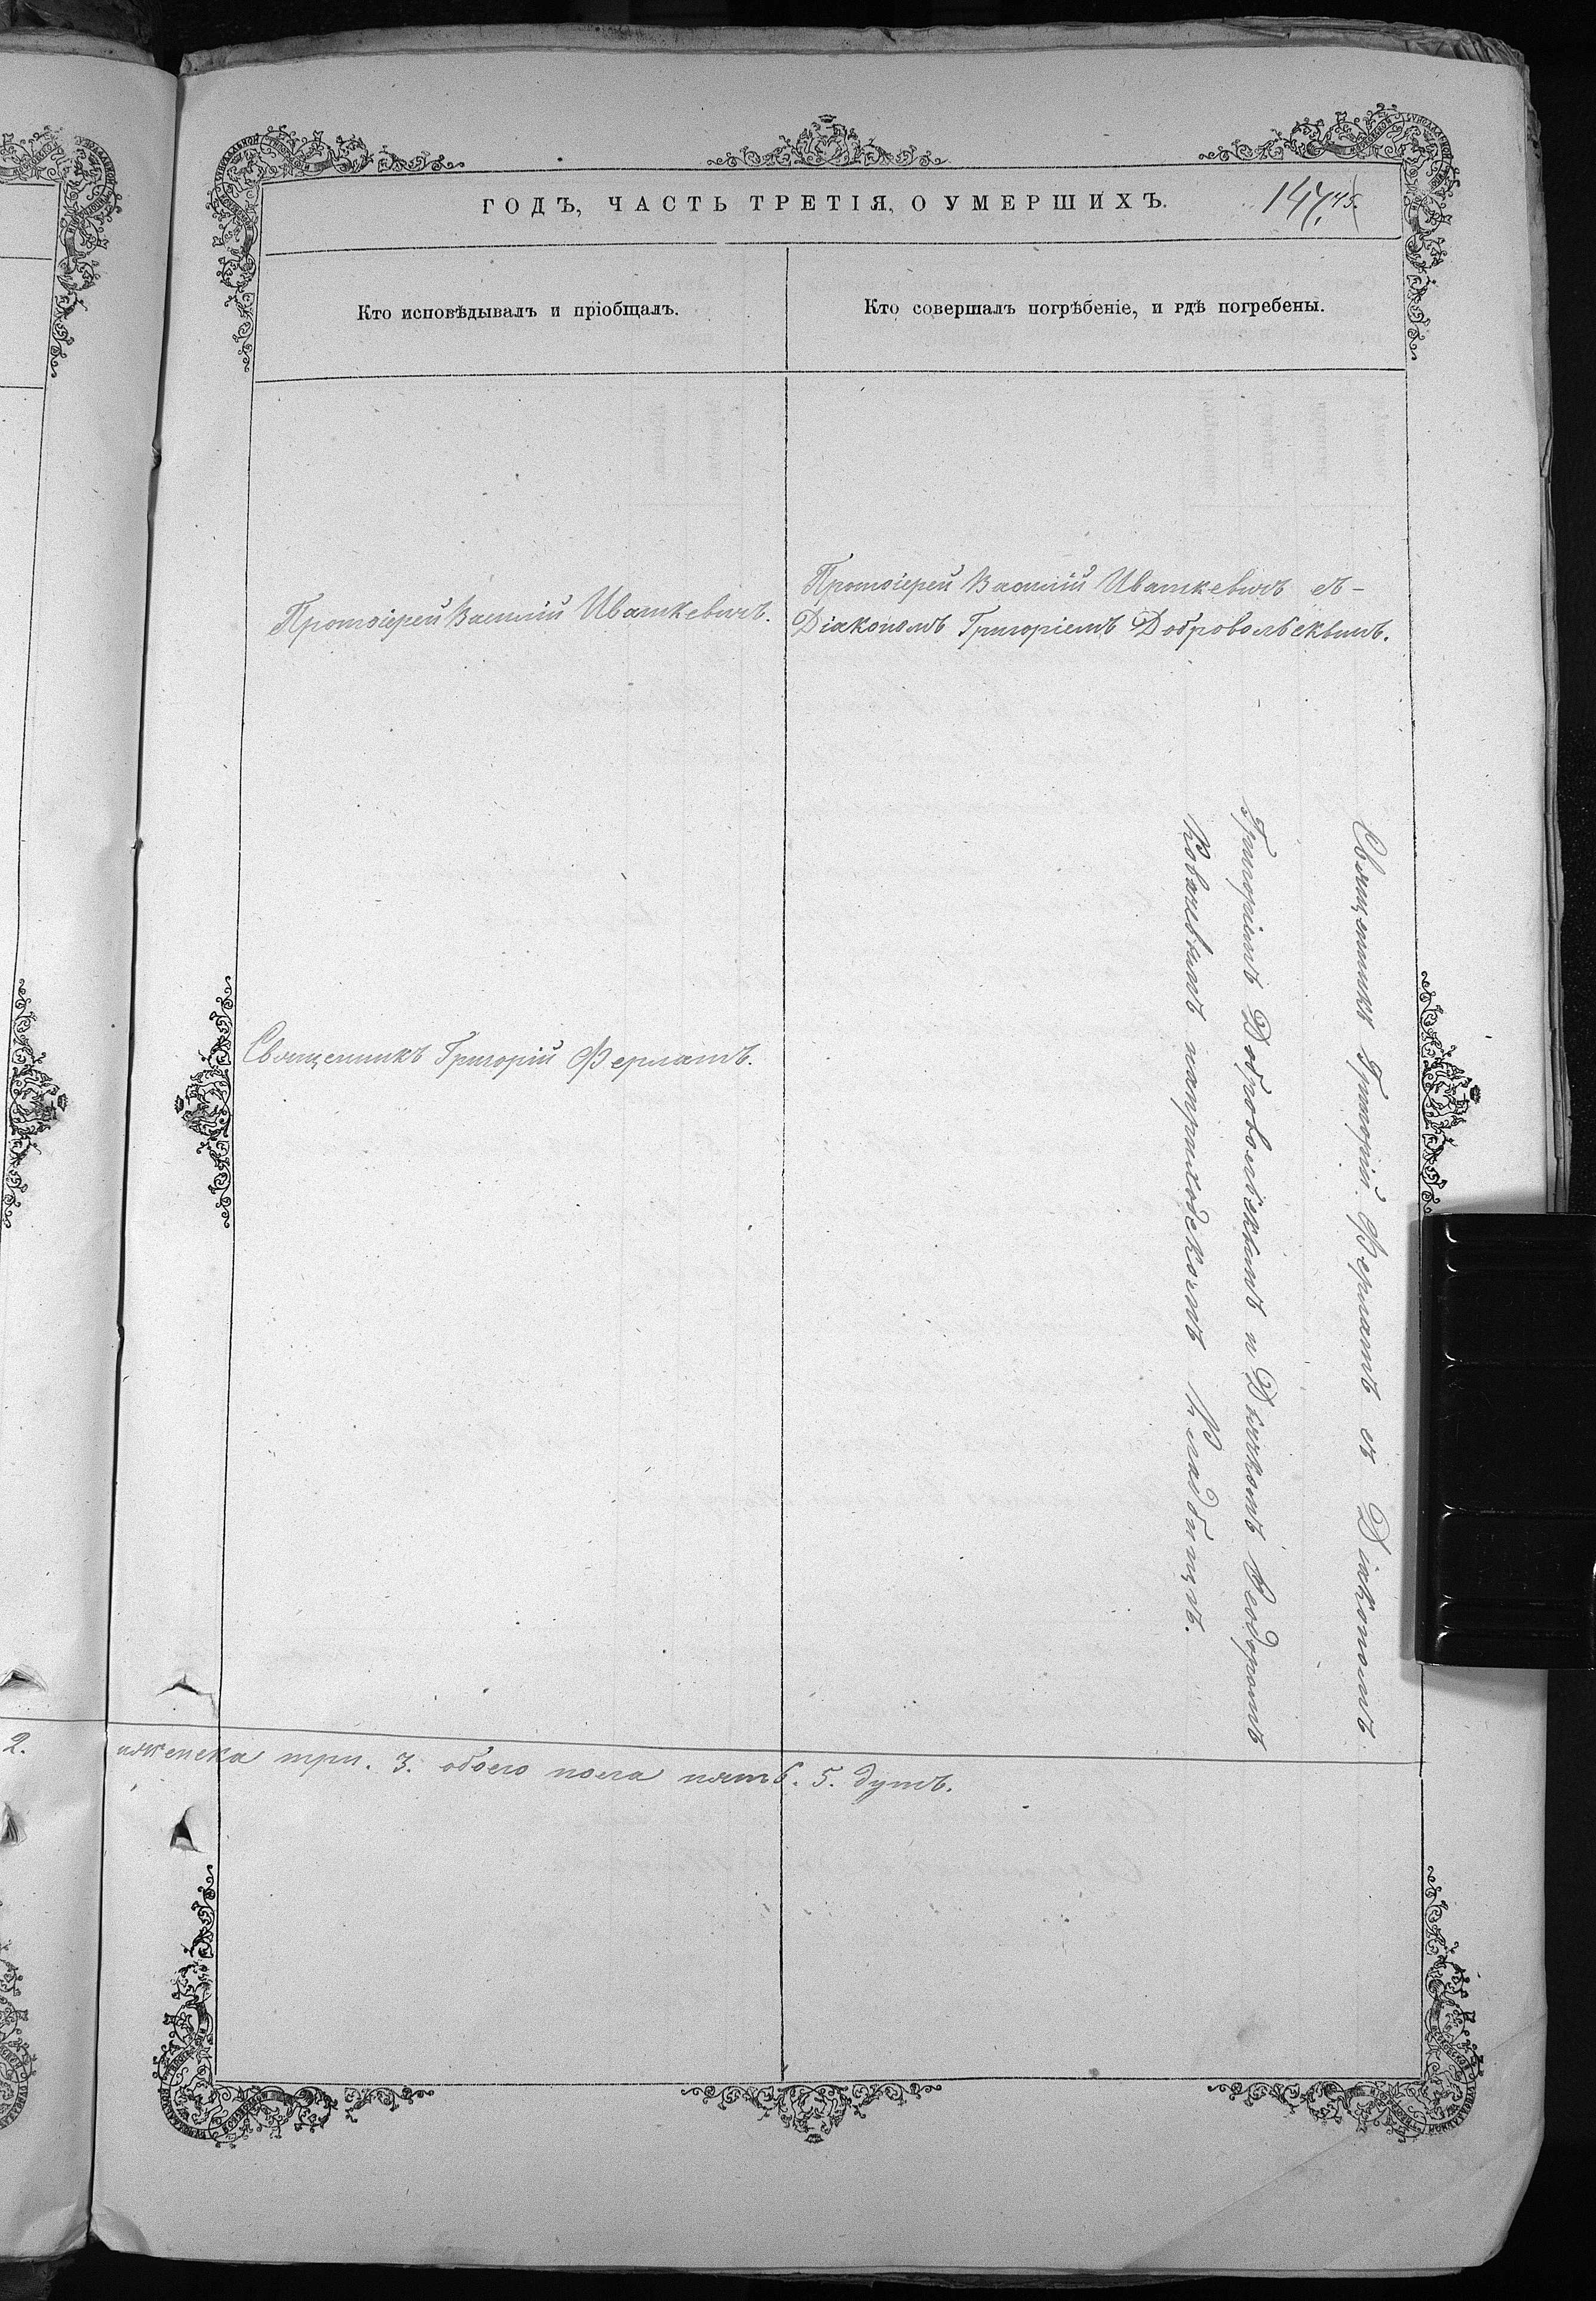 ГОДЪ, ЧАСТЬ ТРЕТІЯ, О УМЕРШИХЪ.
147.
Кто исповѣдывалъ и пріобщалъ.
Кто совершалъ погрѣбеніе, и гдѣ погребены.
Протоіерей Василій Ивашкевичъ.
Протоіерей Василій Ивашкевичъ съ-
Діакономъ Григоріемъ Добровольскымъ.
Священникъ Григорій Ферлатъ.
Священникъ Григорій Ферлатъ съ Діакономъ
Григоріемъ Добровольскымъ и Дьячкомъ Ѳеодоромъ
наприходскомъ Кладбищѣ.
2.
женска три. 3. обоего пола пять. 5. душъ.